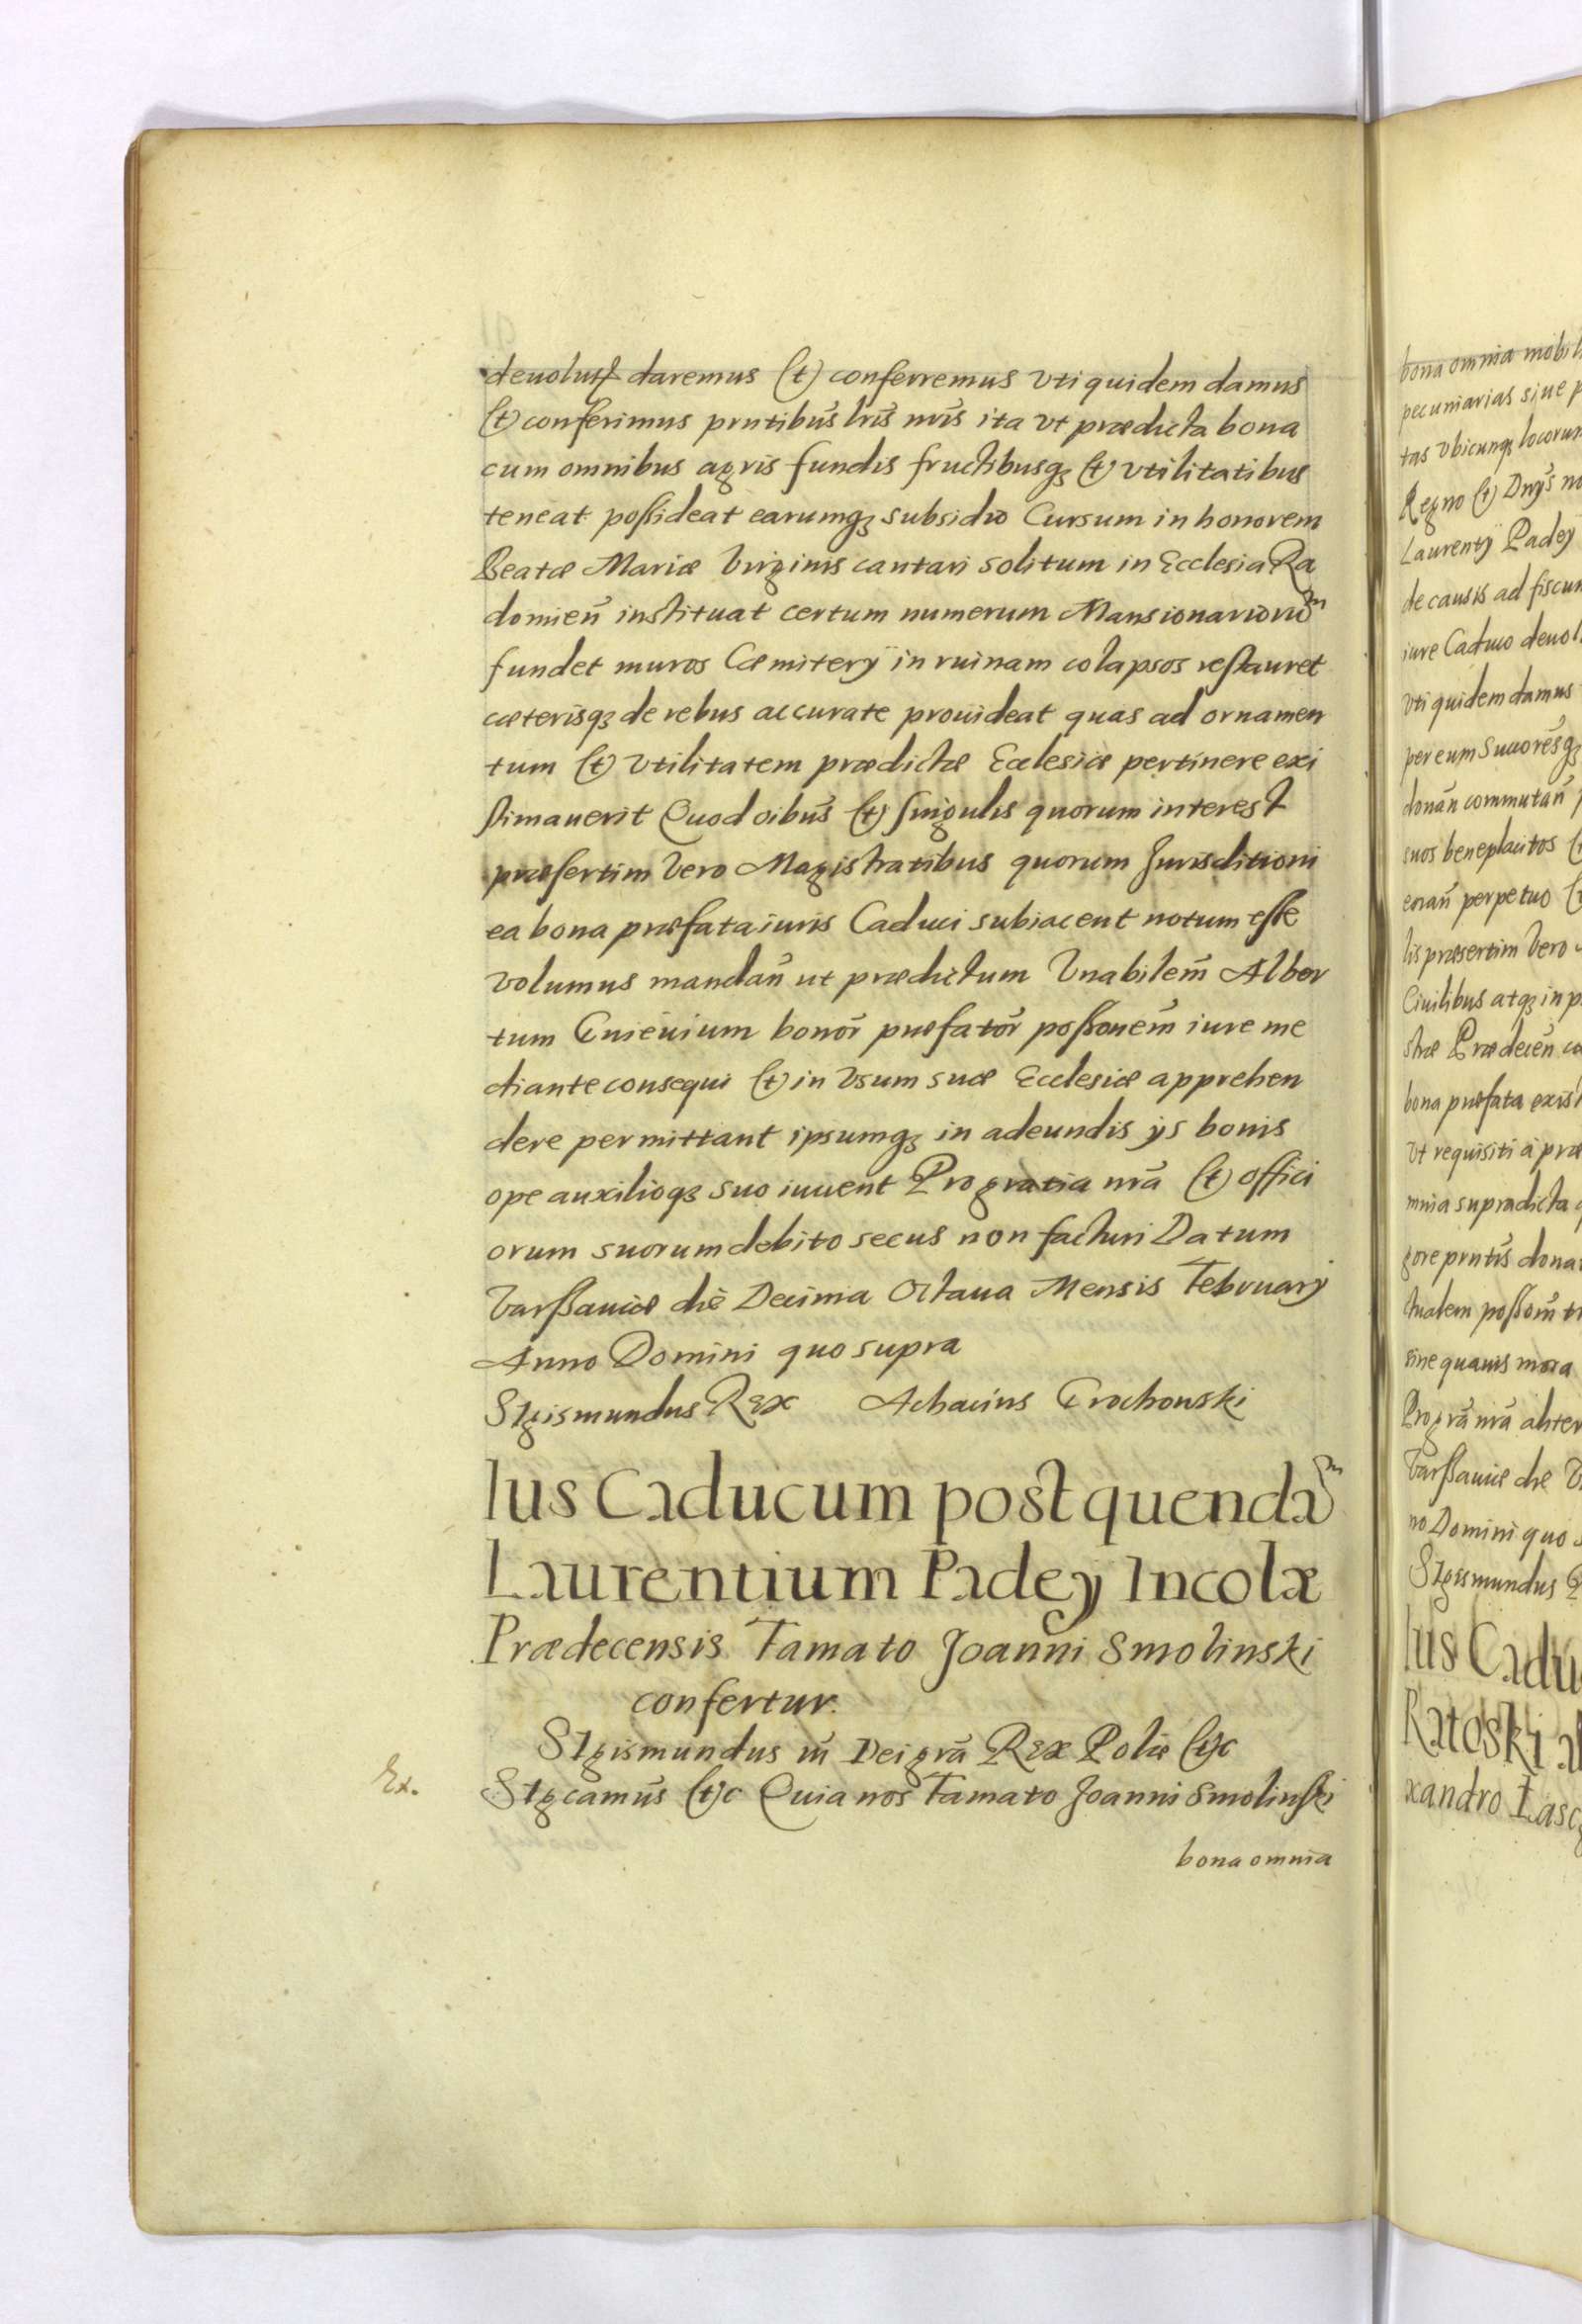 daremus (et) conferremus vti quidem damus
(et) conferimus prntibus lris nris ita vt prædicta bona
cum omnibus agris fundis fructibusqȝ (et) vtilitatibus
teneat possideat earumqȝ subsidio Cursum in honorem
Beatæ Mariæ Virginis cantari solitum in Ecclesia Ra
domien̄ instituat certum numerum Mansionariorum
fundet muros Cæmiterÿ in ruinam colapsos restauret
cæterisqȝ de rebus accurate prouideat quas ad ornamen
tum (et) vtilitatem prædictæ Ecclesiæ pertinere exi
stimauerit Quod oibus (et) singulis quorum interest
præsertim vero Magistratibus quorum Jurisditioni
ea bona præfata iuris Caduci subiacent notum esse
volumus mandan̄ ut prædictum Vnabilem̄ Alber
tum Gnieuium bonor̄ præfator̄ possonem̄ iure me
diante consequi (et) in vsum suæ Ecclesiæ apprehen
dere permittant ipsumqȝ in adeundis ÿs bonis
ope auxilioqȝ suo iuuent Pro gratia nr̄a (et) offici
orum suorum debito secus non facturi Datum
Varssauiæ die Decima Octaua Mensis Februarÿ
Anno Domini quo supra
Sigismundus Rex Achacius Grochowski
Ius Caducum post quendam
Laurentium Padey Incolæ
Prædecensis Famato Joanni Smolinski
confertur.
Sigismundus iii Dei gr̄a Rex Polæ (et)c
Ex.
Sigcamus (et)c Quia nos Famato Joanni Smolinski
bona omnia
bona omnia mobili
pecuniarias siue p
tas vbicunqȝ locorum
Regno (et) Dnÿs no
Laurentÿ Padey
de causis ad fiscum
iure Caduco deuol
vti quidem damus
per eum Succoresqȝ
donan̄ commutan̄
suos beneplacitos
perpetuo
lis præsertim vero
Ciuilibus atqȝ in p
stræ Prædecen̄
bona præfata exist
vt requisiti a præ
mnia supradicta
gore prntis donat
ctualem possom̄
sine quauis mora
Pro gr̄a nr̄a aliter
Varssauiæ die
no Domini quo
Sigismundus
Ius Cadu
Ratoski
xandro Łasc